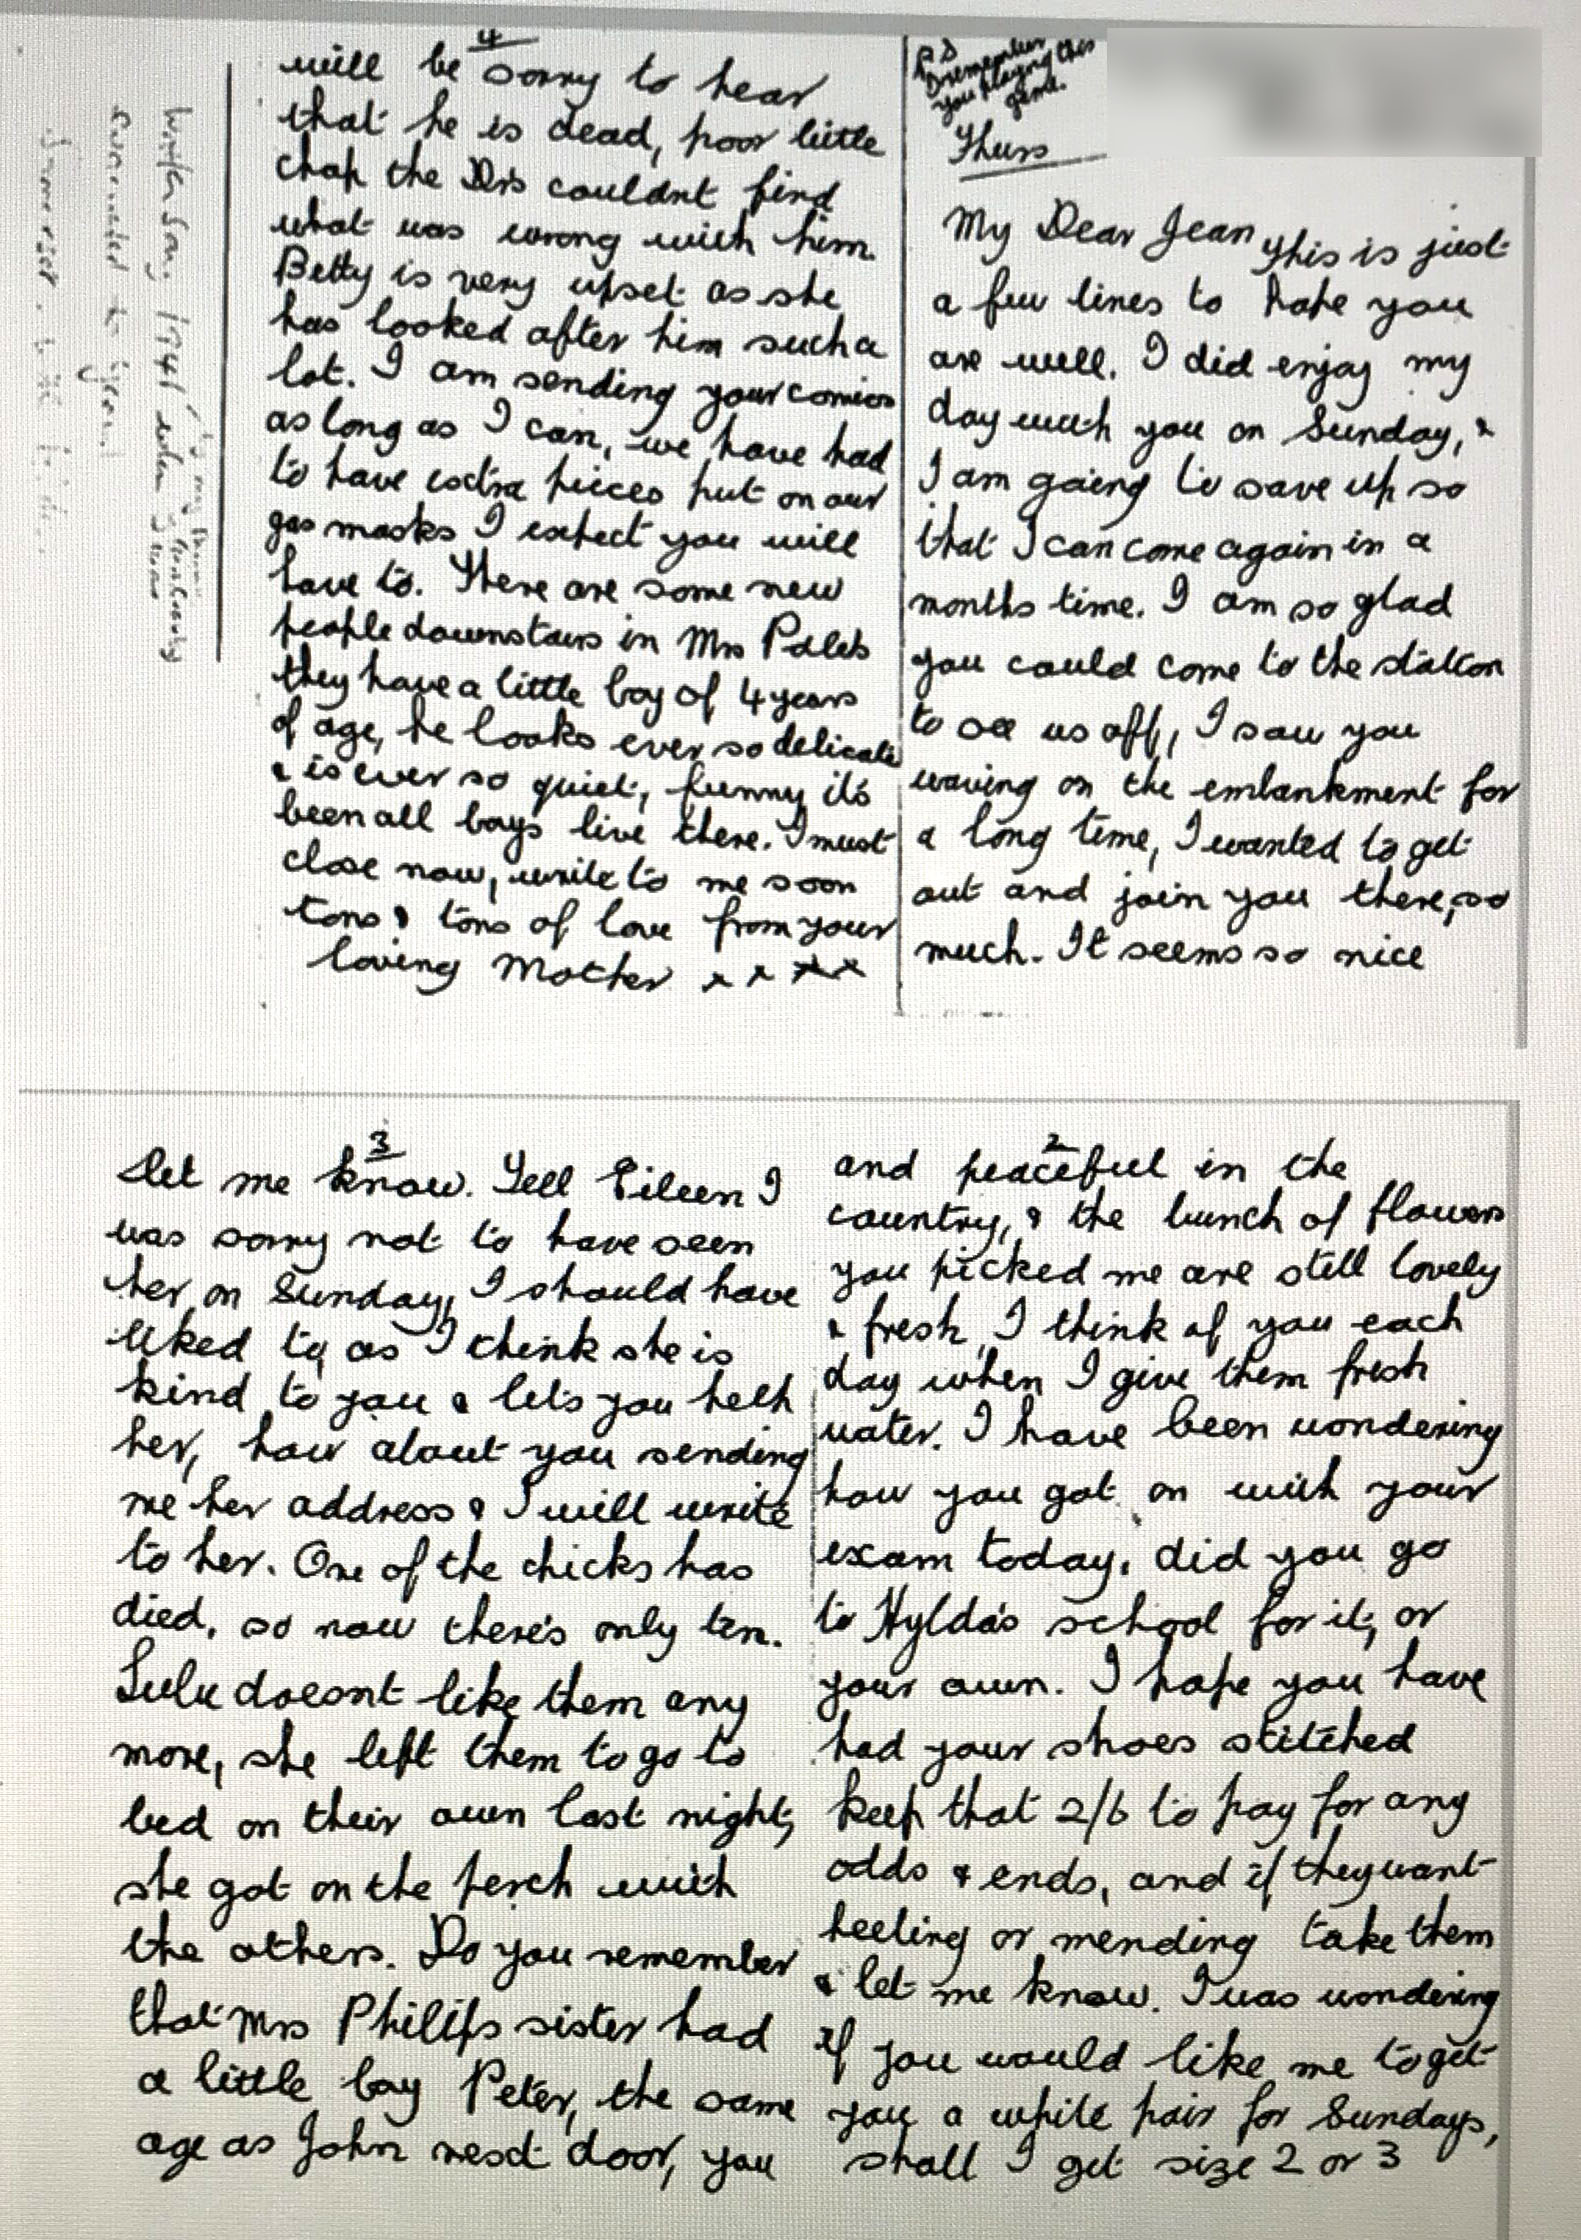 PS
I remember
you playing this
game.
Thurs
My Dear Jean, This is just
a few lines to hope you
are well. I did enjoy my
day with you on Sunday, &
I am going to save up so
that I can come again in a
months time. I am so glad
you could come to the station
to see us off, I saw you
waving on the embankment for
a long time, I wanted to get
out and join you there, so
much. It seems so nice
2
and peaceful in the
country, & the bunch of flowers
you picked me are still lovely
& fresh, I think of you each
day when I give them fresh
water. I have been wondering
how you got on with your
exam today, did you go
to Hylda's school for it, or
your own. I hope you have
had your shoes stitched
keep that 2/6 to pay for any
odds & ends, and if they want
heeling or mending take them
& let me know. I was wondering
if you would like me to get
you a white pair for Sundays,
shall I get size 2 or 3
3
let me know. Tell Eileen I
was sorry not to have seen
her on Sunday, I should have
liked to, as I think she is
kind to you & lets you help
her, how about you sending
me her address & I will write
to her. One of the chicks has
died, so now there's only ten.
Lulu doesnt like them any
more, she left them to go to
bed on their own last night,
she got on the perch with
the others. Do you remember
that Mrs Philips sister had
a little boy Peter, the same
age as John next door, you
4
will be sorry to hear
that he is dead, poor little
chap the Drs couldnt find
what was wrong with him.
Betty is very upset as she
has looked after him such a
lot. I am sending your comics
as long as I can, we have had
to have extra pieces put on our
gas masks I expect you will
have to. There are some new
people downstairs in Mrs
they have a little boy of 4 years
of age, he looks ever so delicate
& is ever so quiet, funny it's
been all boys live there. I must
close now, write to me soon
tons & tons of love from your
loving Mother x x x x
1941 when I was
evacuated to
Somerset